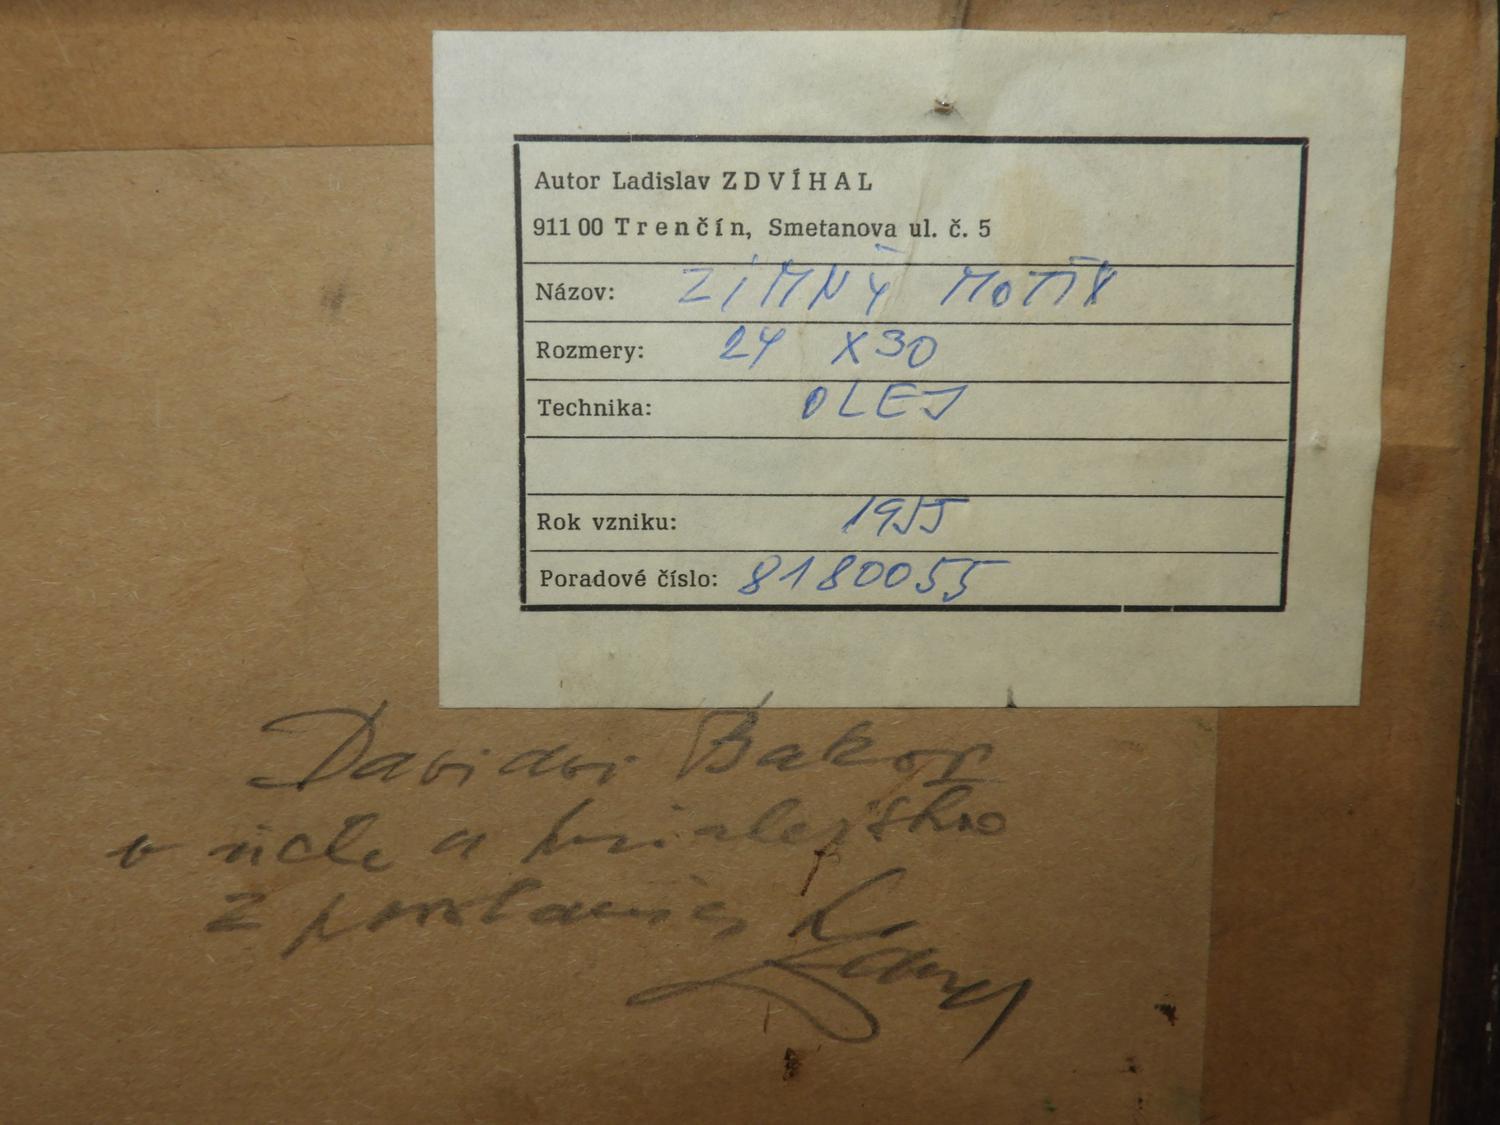 Autor Ladislav ZDVÍHAL
911 00 Trenčín, Smetanova ul. č. 5
Názov: ZÍMNÝ MOTÍV
Rozmery: 24 X 30
Technika: OLEJ
Rok vzniku: 1955
Poradové číslo: 8180055
Davidovi Bakoš
v úcte a
z